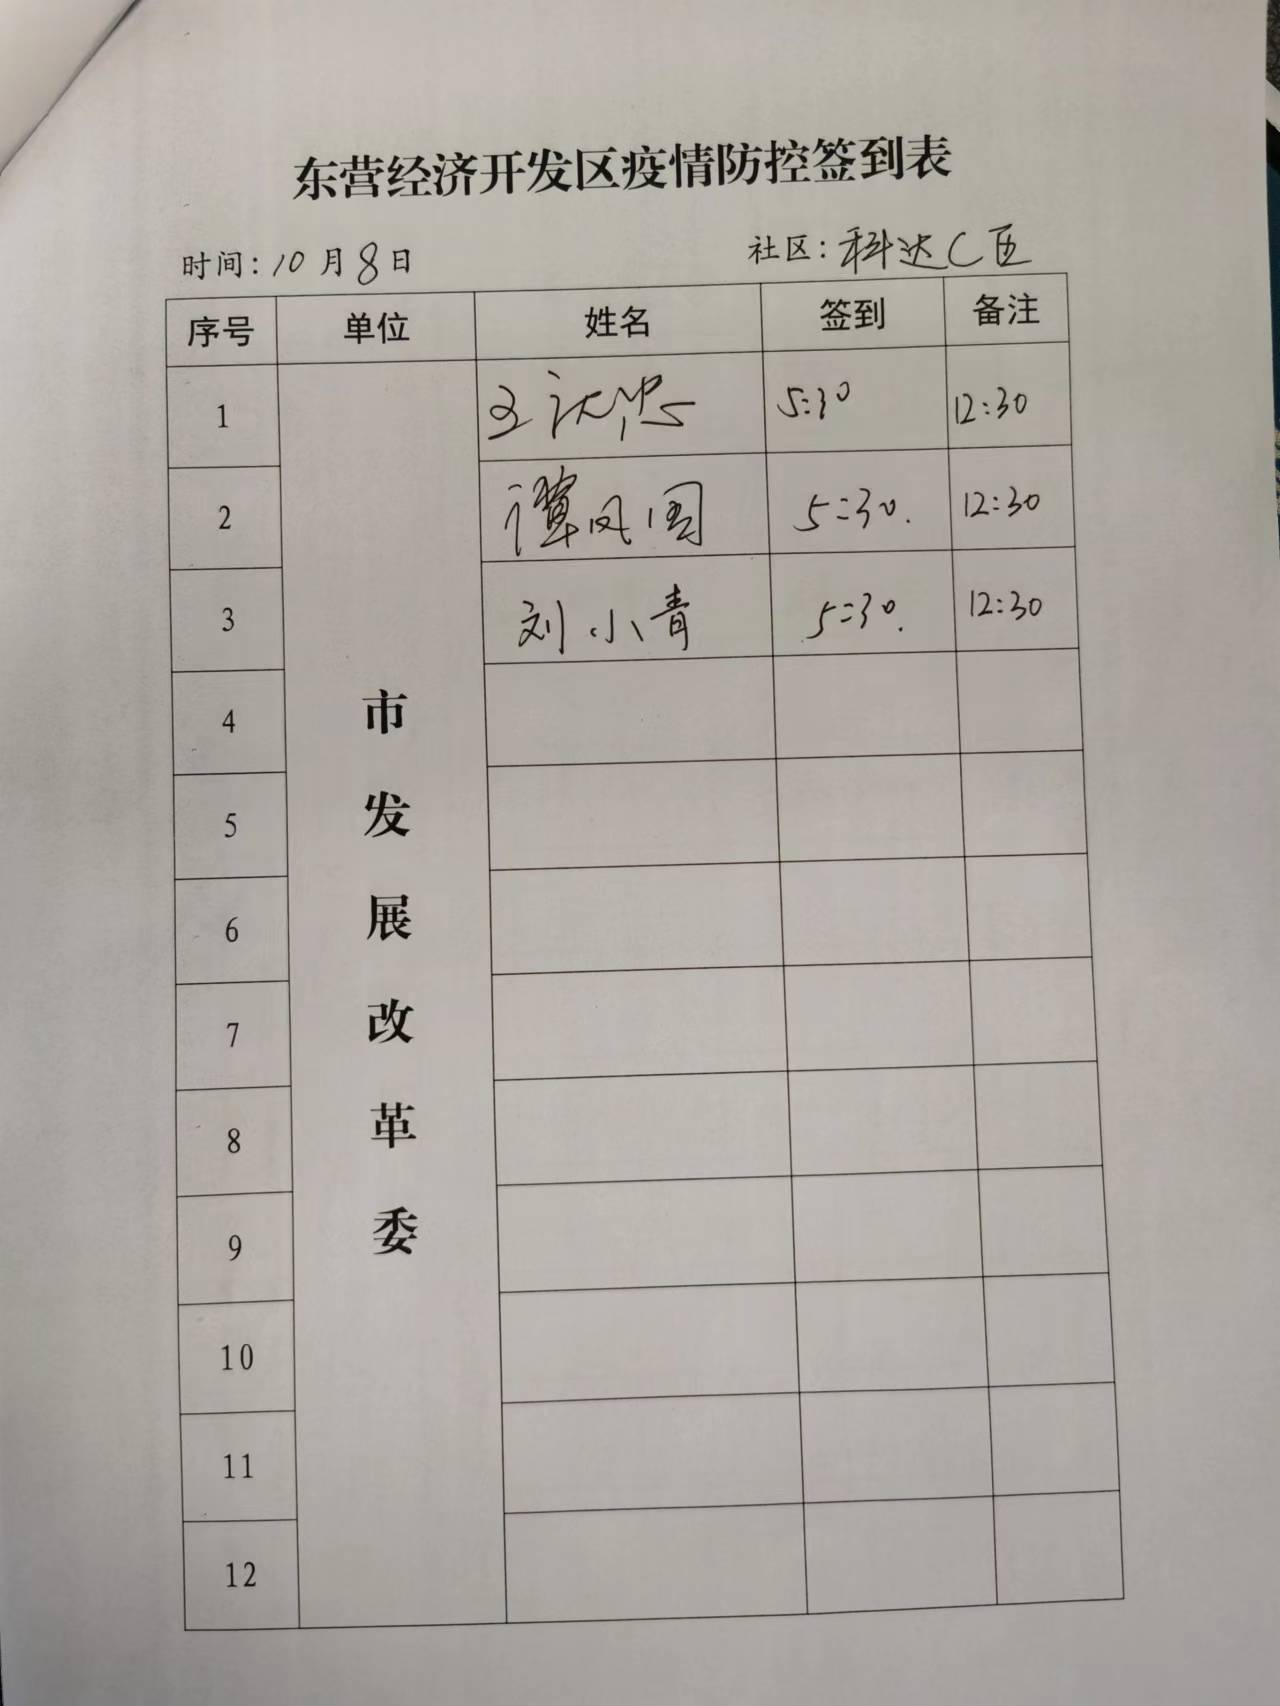 东营经济开发区疫情防控签到表
时间：10月8日 社区：科达C区
序号 单位 姓名 签到 备注
1 5:30 12:30
2 谭凤国 5:30. 12:30
3 刘小青 5:30. 12:30
4
5
6
7
8
9
10
11
12
市发展改革委